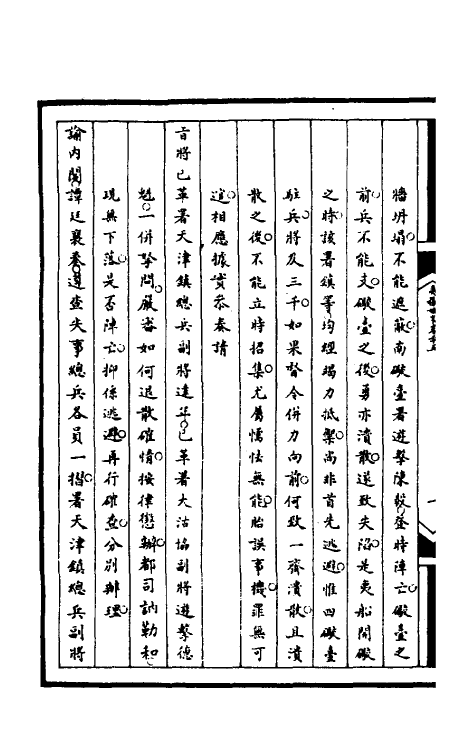 牆坍塌不能遮蔽南礮臺署遊擊陳毅登時陣亡礮臺之
前兵不能支礮臺之後勇亦潰散遂致失陷是夷船開礮
之時該署鎮等均經竭力抵禦尚非首先逃避惟四礮臺
駐兵將及三千如果督令併力向前何致一齊潰散且潰
散之後不能立時招集尤屬懦怯無能貽誤事機罪無可
逭相應據實恭奏請
旨將已革署天津鎮總兵副將達年已革署大沽協副將遊擊德
魁一併拏問嚴審如何退散確情按律懲辦都司訥勒和
現無下落是否陣亡抑係逃避再行確查分別辦理
諭內閣譚廷襄奏遵查失事總兵各員一摺署天津鎮總兵副將